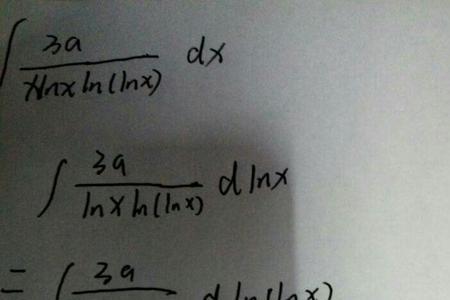 ∫ 3a / (x ln x ln(ln x)) dx
∫ 3a / (ln x ln(ln x)) d ln x
= ∫ 3a / d ln(ln x)